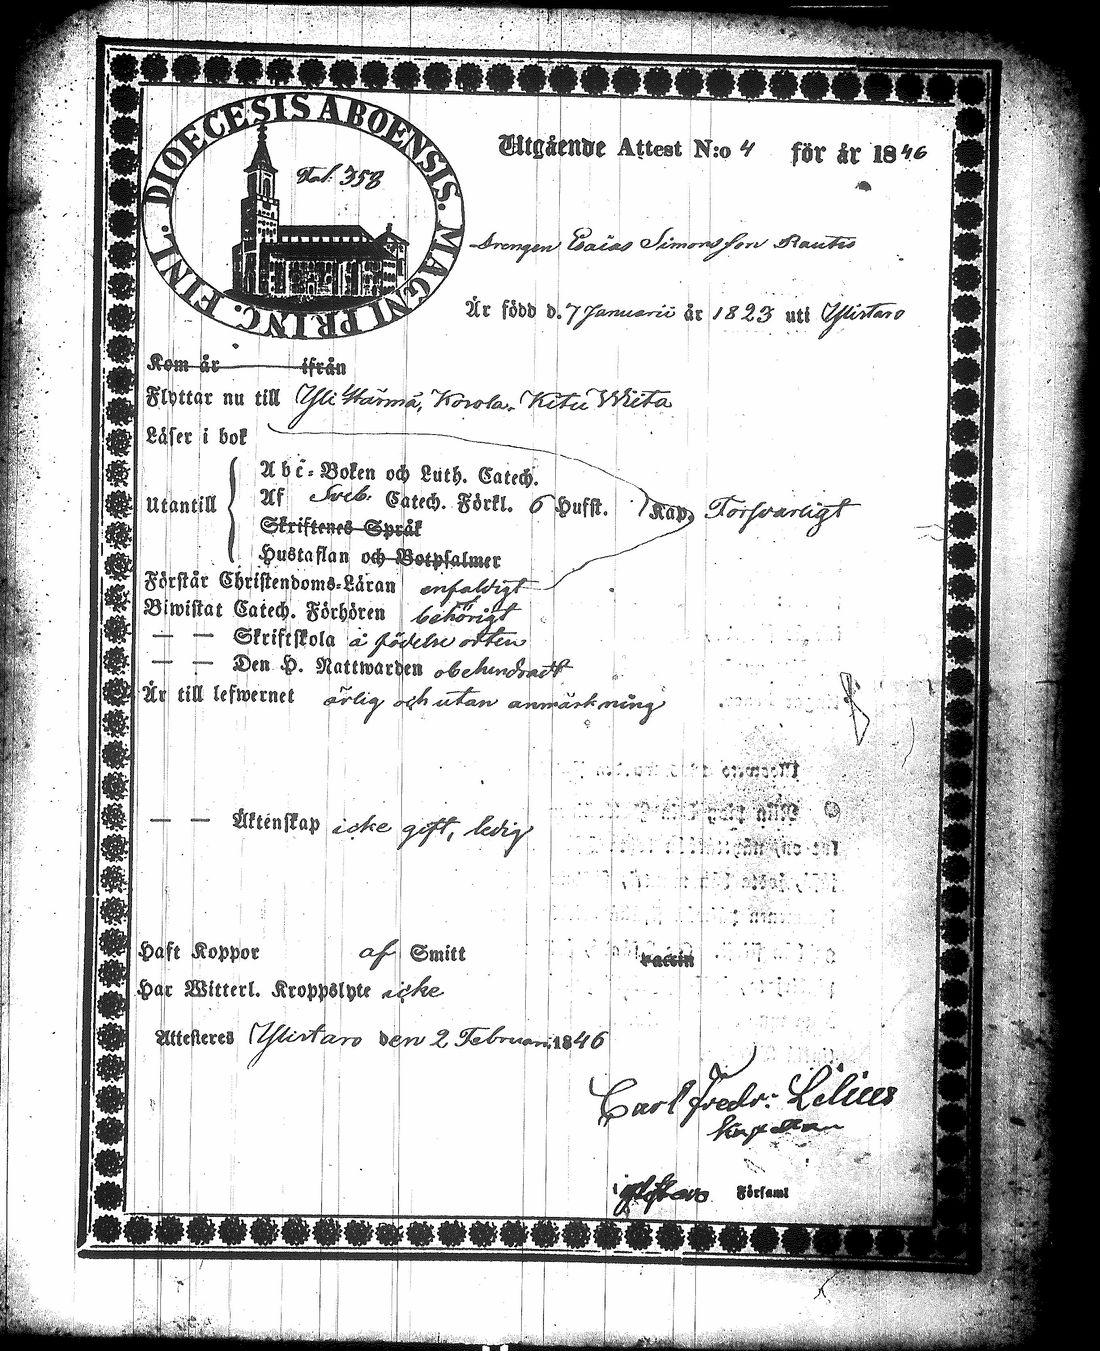 DIOECESIS ABOENSIS. MAGNI PRINC. FINL.
358
Utgående Attest N:o 4 för år 1846
Drengen Esaias Simonsson Rautio
Är född d. 7 Januarii år 1823 uti Ylistaro
Kom år ifrån
Flyttar nu till Yli Härmä, Korola,
Läser i bok
Utantill
Abc-Boken och Luth. Catech.
Af Sveb. Catech. Förkl. 6 Hufst. Kap. Försvarligt
Skriftenes Språk
Hustaflan och Botpsalmer
Förstår Christendoms-Läran enfaldigt
Biwistat Catech. Förhören behörigt
— — Skriftskola å födelse orten
— — Den H. Nattwarden obehindradt
Är till lefwernet ärlig och utan anmärkning
— — Äktenskap icke gift, ledig
Haft Koppor af Smitt Vaccin
Har Witterl. Kroppslyte icke
Attesteres Ylistaro den 2 Februari 1846
Carl Fredr: Lilius
i Församl